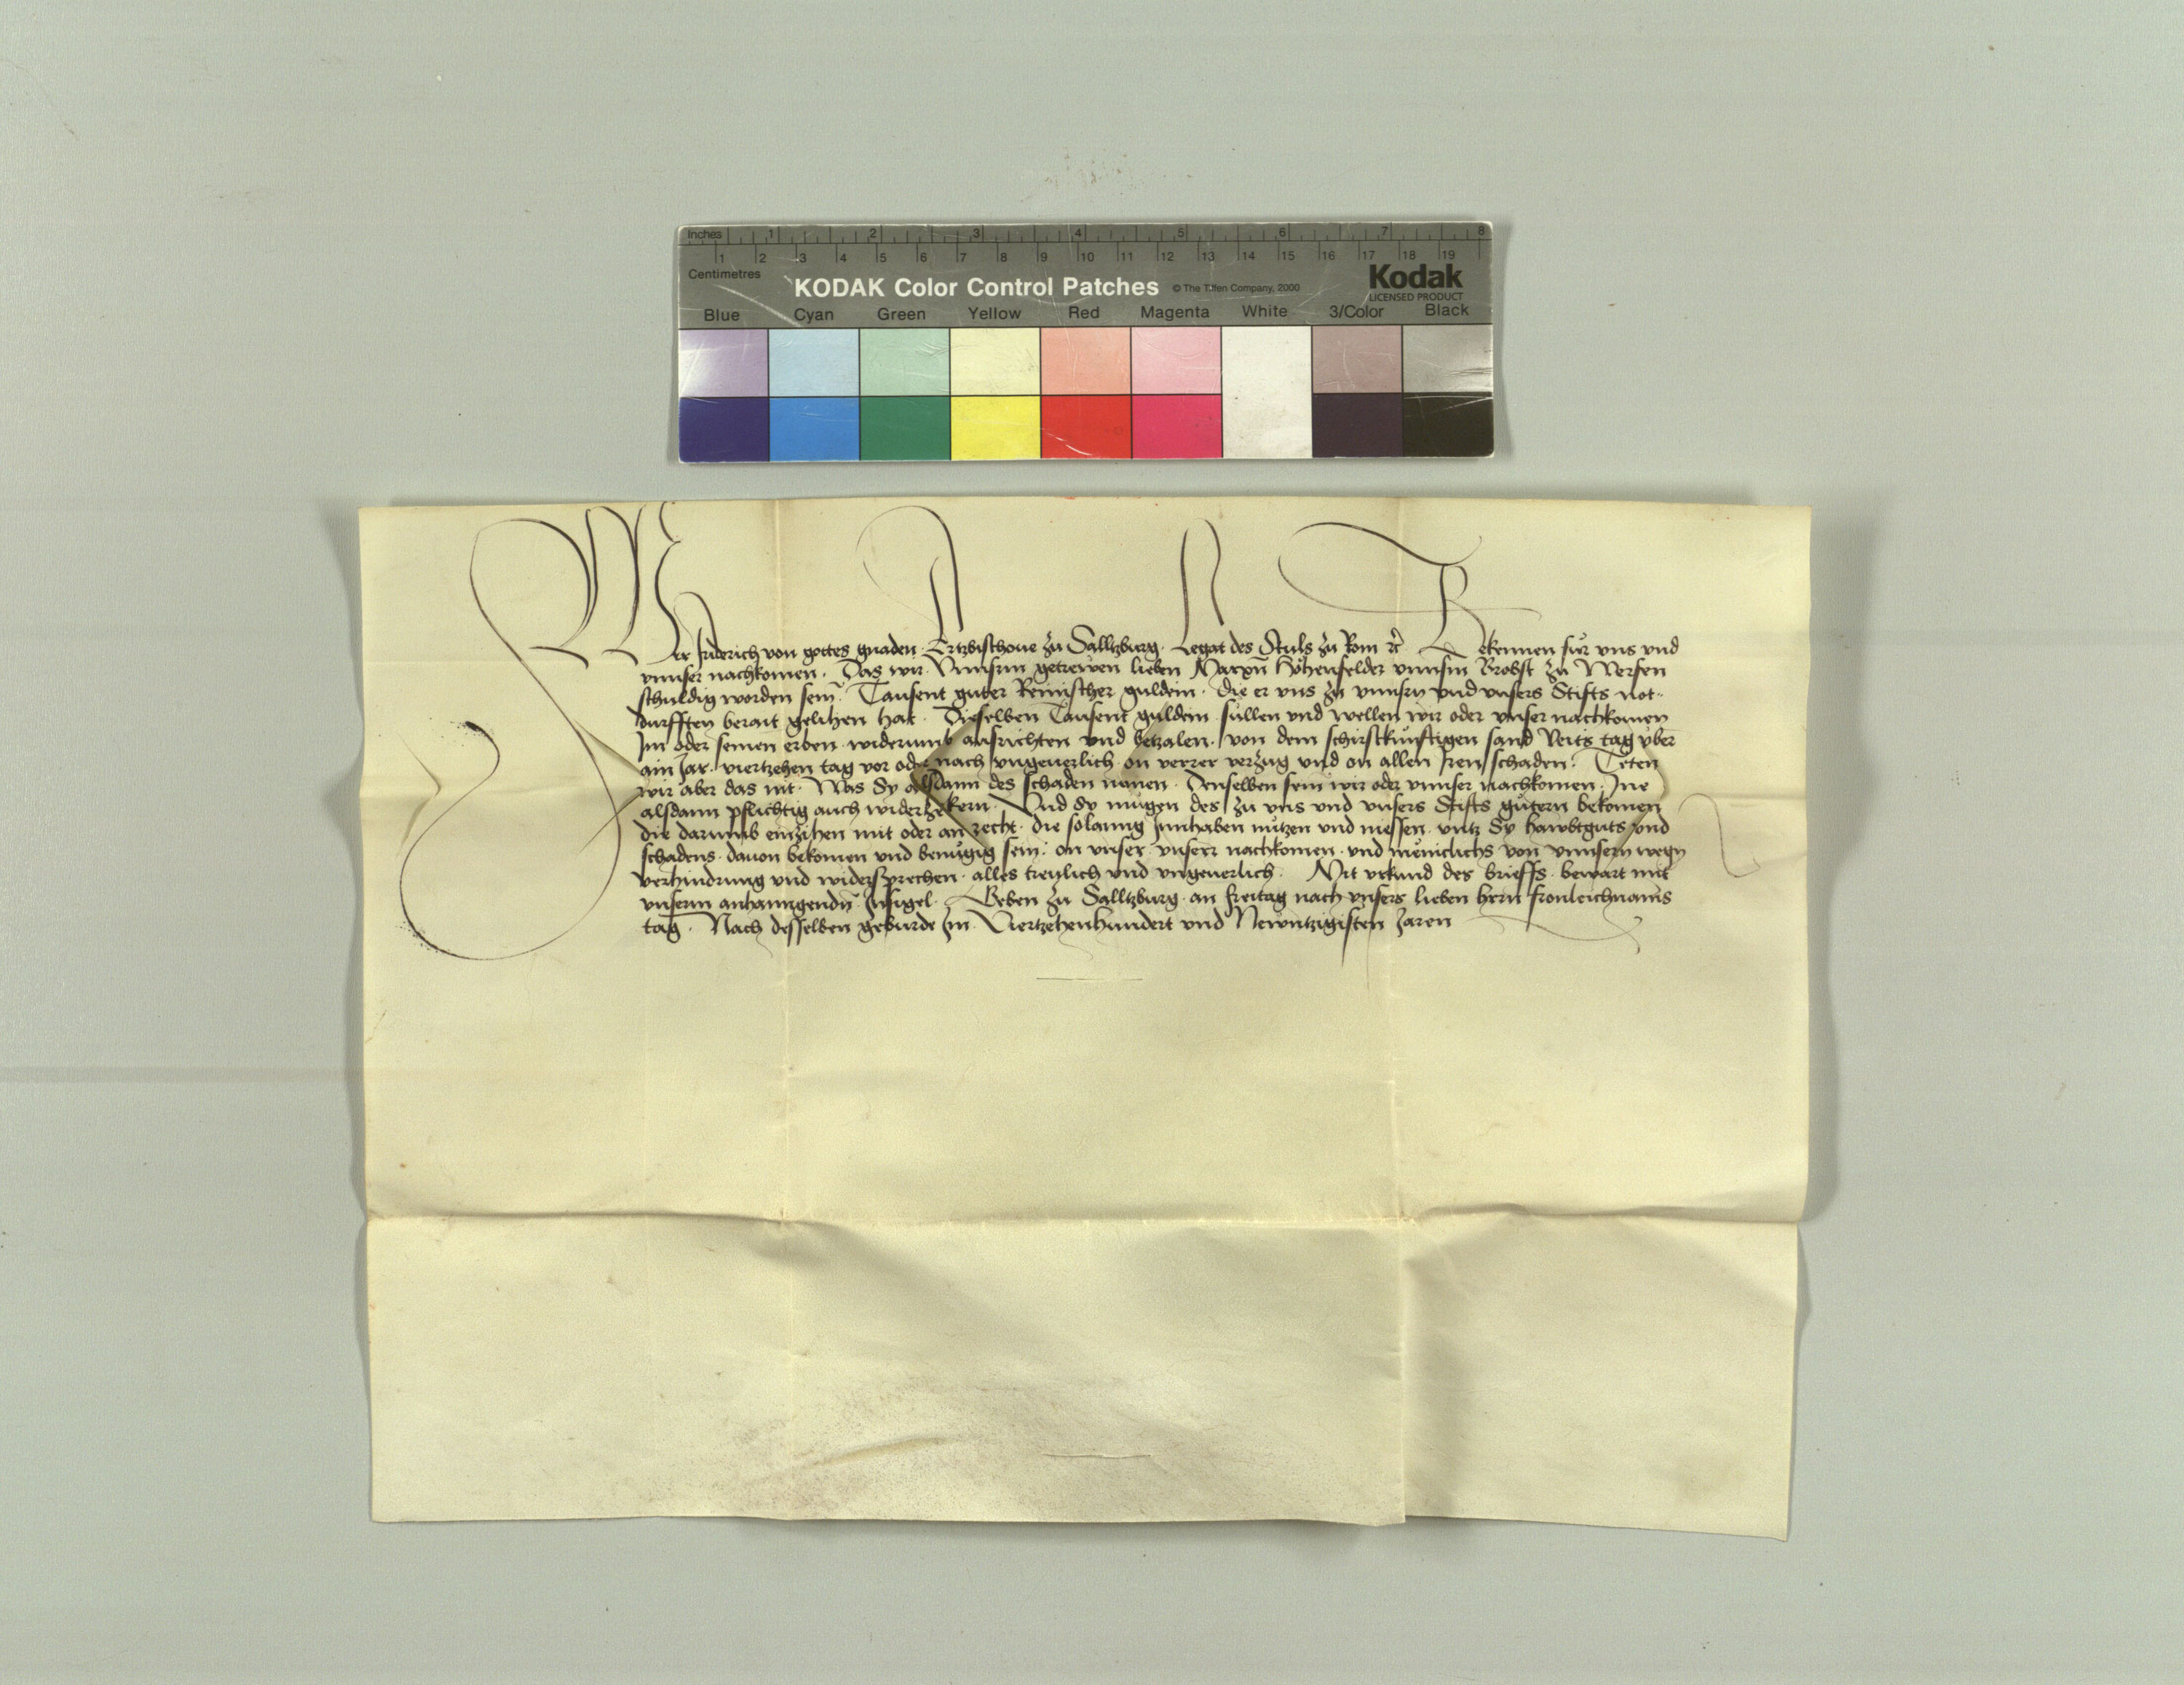 Inches 1 2 3 4 5 6 7 8
1 2 3 4 5 6 7 8 9 10 11 12 13 14 15 16 17 18 19
Centimetres
KODAK Color Control Patches © The Tiffen Company, 2000 Kodak
LICENSED PRODUCT
Blue Cyan Green Yellow Red Magenta White 3/Color Black
Wir Friderich von gottes gnaden Ertzbischoue zu Salltzburg Legat des Stuls zu Rom rc Bekennen für uns und
vnnser nachkomen. Das wir Vnnserm getrewen lieben Marxn Höhenfelder vnnserm Brobst zu Werfen
schuldig worden sein. Tausent guter Reinischer guldein. die er vns zu vnnsern vnd vnsers Stifts not-
durfften berait gelihen hat. Dieselben Tausent guldein süllen vnd wellen wir oder vnser nachkomen
Im oder seinen erben widerumb ausrichten vnd betzalen. von dem schirstkünftigen sand Veits tag vber
ain Jar. viertzehen tag vor oder nach vngeuerlich on verrer verzug vnd on allen Iren schaden. Teten
wir aber das nit. Was Sy alsdann des schaden namen. Denselben sein wir oder vnnser nachkomen. Ine
alsdann pflichtig auch widerzekern. Vnd Sy mügen des zu vns vnd vnsers Stifts gütern bekomen
die darumb einzihen mit oder an recht. die solanng Innhaben nützen vnd niessen. vntz Sy hawbtguts vnd
schadens. dauon bekomen vnd benügig sein. on vnser vnserr nachkomen. vnd meniclichs von vnnsern wegn
verhindrung vnd widersprechen. alles treylich vnd vngeuerlich. Mit vrkund des brieffs. bewart mit
vnserm anhanngendn Insigel. Geben zu Salltzburg. an Freitag nach vnsers lieben herrn fronleichnams
tag. Nach desselben geburde Im. Viertzehenhundert vnd Newntzigisten Jaren